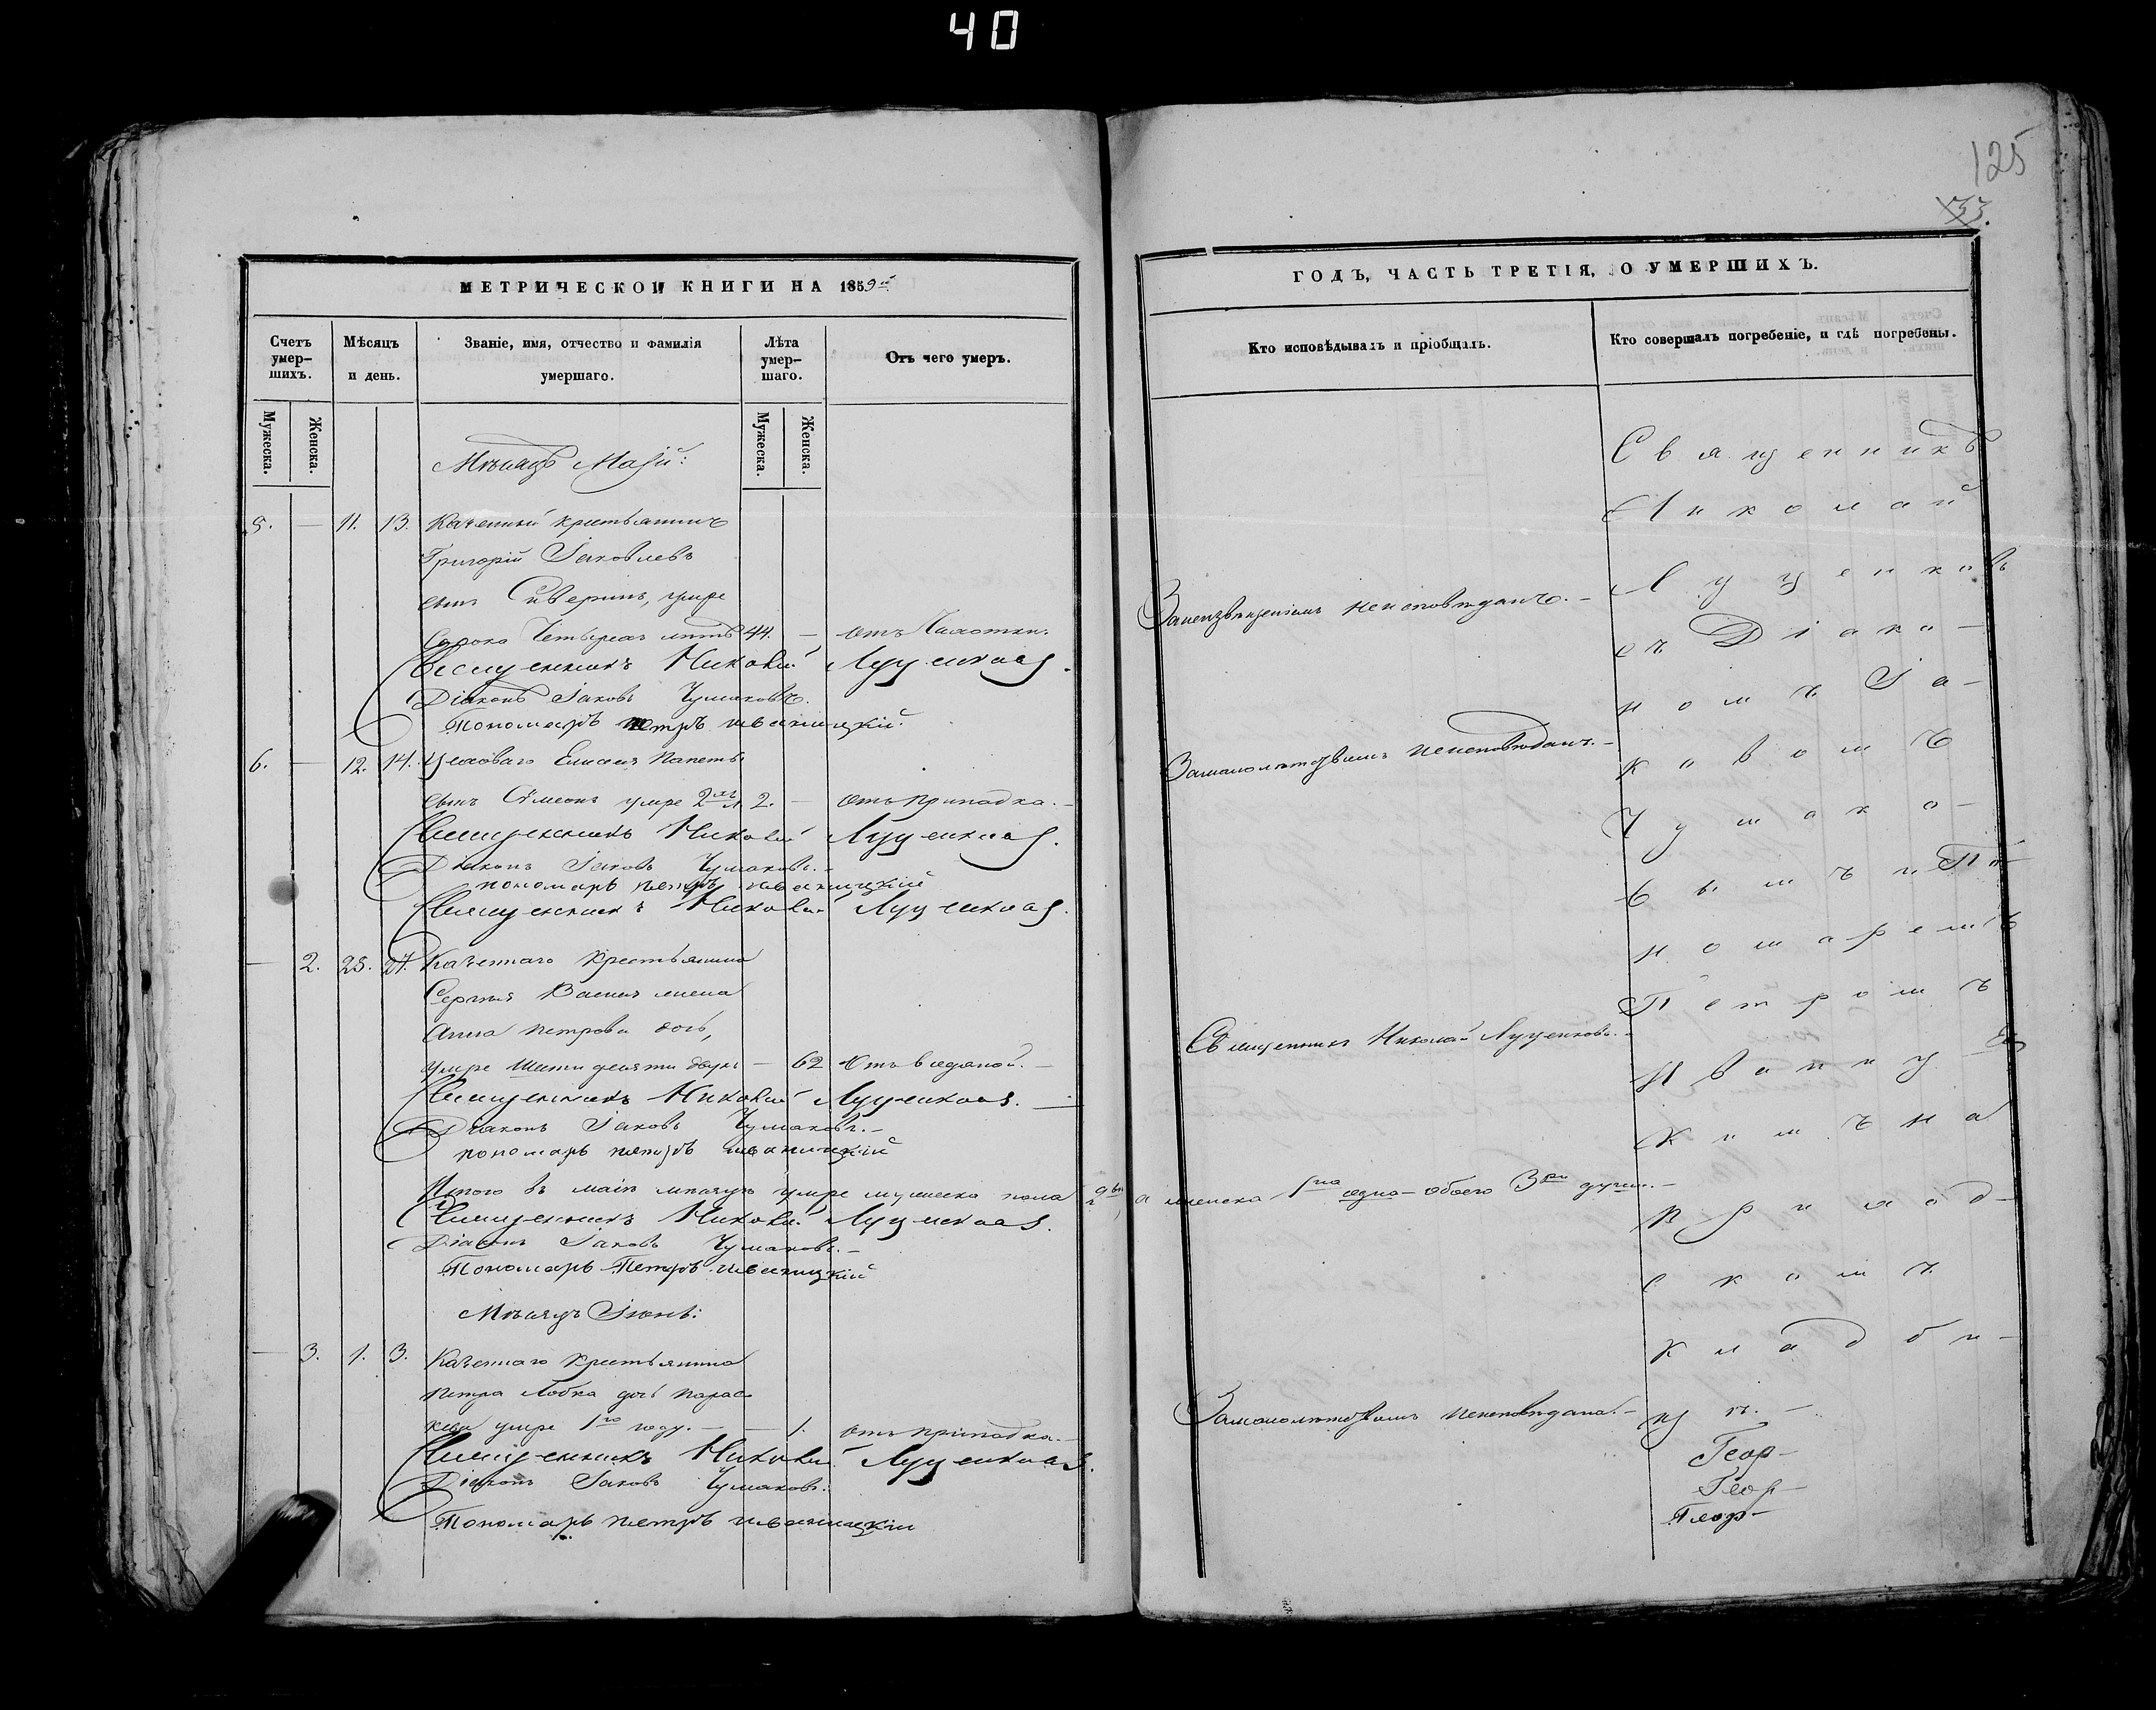 40
125
33.
МЕТРИЧЕСКОЙ КНИГИ НА 1859й
Счетъ умер-
шихъ.
Мѣсяцъ
и день.
Званіе, имя, отчество и фамилія
умершаго.
Лѣта
умер-
шаго.
Отъ чего умеръ.
Мужеска.
Женска.
Мужеска.
Женска.
Мѣсяцъ Маій:
5. — 11. 13. Казенный крестьянинъ
Григорій Іаковлевъ
сынъ Сиверинъ, умре
Сорока Четырехъ лѣтъ 44. — отъ Чахотки.
Священникъ Николай Луценковъ.
Діаконъ Іаковъ Чумаковъ.
Пономарь Петръ Иваницкій.
6. — 12. 14. Цеховаго
сынъ Сѵмеонъ умре 2хъ л 2. — отъ припадка. —
Священникъ Николай Луценковъ.
Діаконъ Іаковъ Чумаковъ. —
пономарь петръ иваницкій
Священникъ Николай Луценковъ.
— 2. 25. 27. Казеннаго Крестьянина
Сергѣя жена
Анна петрова дочь,
умре Шестидесяти двухъ — 62 Отъ водяной. —
Священникъ Николай Луценковъ. —
Діаконъ Іаковъ Чумаковъ. —
пономарь петръ иваницкій
Итого въ маіѣ мѣсяцѣ умре мужеска пола 2ва, а женска 1на одна — обоего 3ри души. —
Священникъ Николай Луценковъ.
Діаконъ Іаковъ Чумаковъ. —
Пономарь Петръ иваницкій
Мѣсяцъ Іюнь:
— 3. 1. 3. Казеннаго Крестьянина
петра Лобка дочь Парас
кева умре 1го году. — — 1. отъ припадка. —
Священникъ Николай Луценковъ.
Діаконъ Іаковъ Чумаковъ.
Пономарь петръ иваницкій
ГОДЪ, ЧАСТЬ ТРЕТІЯ, О УМЕРШИХЪ.
Кто исповѣдывалъ и пріобщалъ.
Кто совершалъ погребеніе, и гдѣ погребены.
Занеизвѣщеніемъ неисповѣданъ. —
Замалолѣтствіемъ неисповѣданъ. —
Священникъ Николай Луценковъ. —
Замалолѣтствіемъ неисповѣдана. —
Священникъ
Николай
Луценковъ
съ Діако-
номъ Іа-
ковомъ
Чумако-
вымъ и По
номаремъ
Петромъ
Иваниц
кимъ на
приход-
скомъ
кладби-
щѣ. —
Геор-
Геор-
Геор-